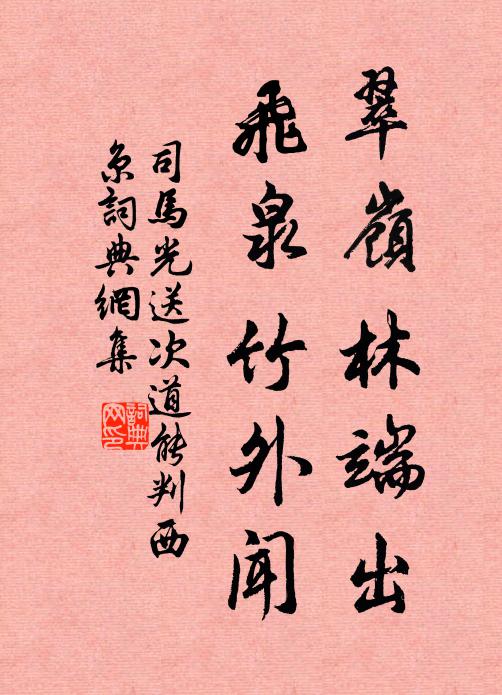 翠嶺林端出
飛泉竹外聞
司馬光送次道能判西
京詞典網集
詞典
网印